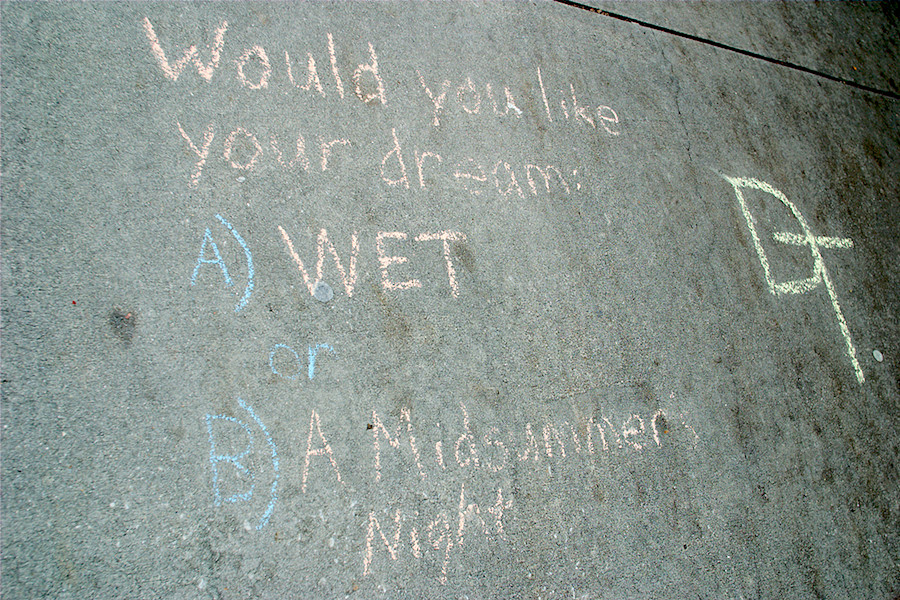 Would you like
your dream:
A) WET
or
B) A Midsummer
Night